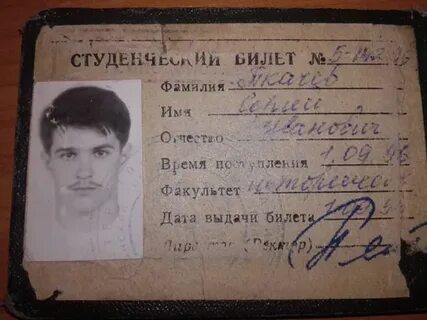 СТУДЕНЧЕСКИЙ БИЛЕТ №
Фамилия Ткачев
Имя Сергей
Отчество Иванович
Время поступления 1.09 96
Факультет
Дата выдачи билета
Директор (Ректор)